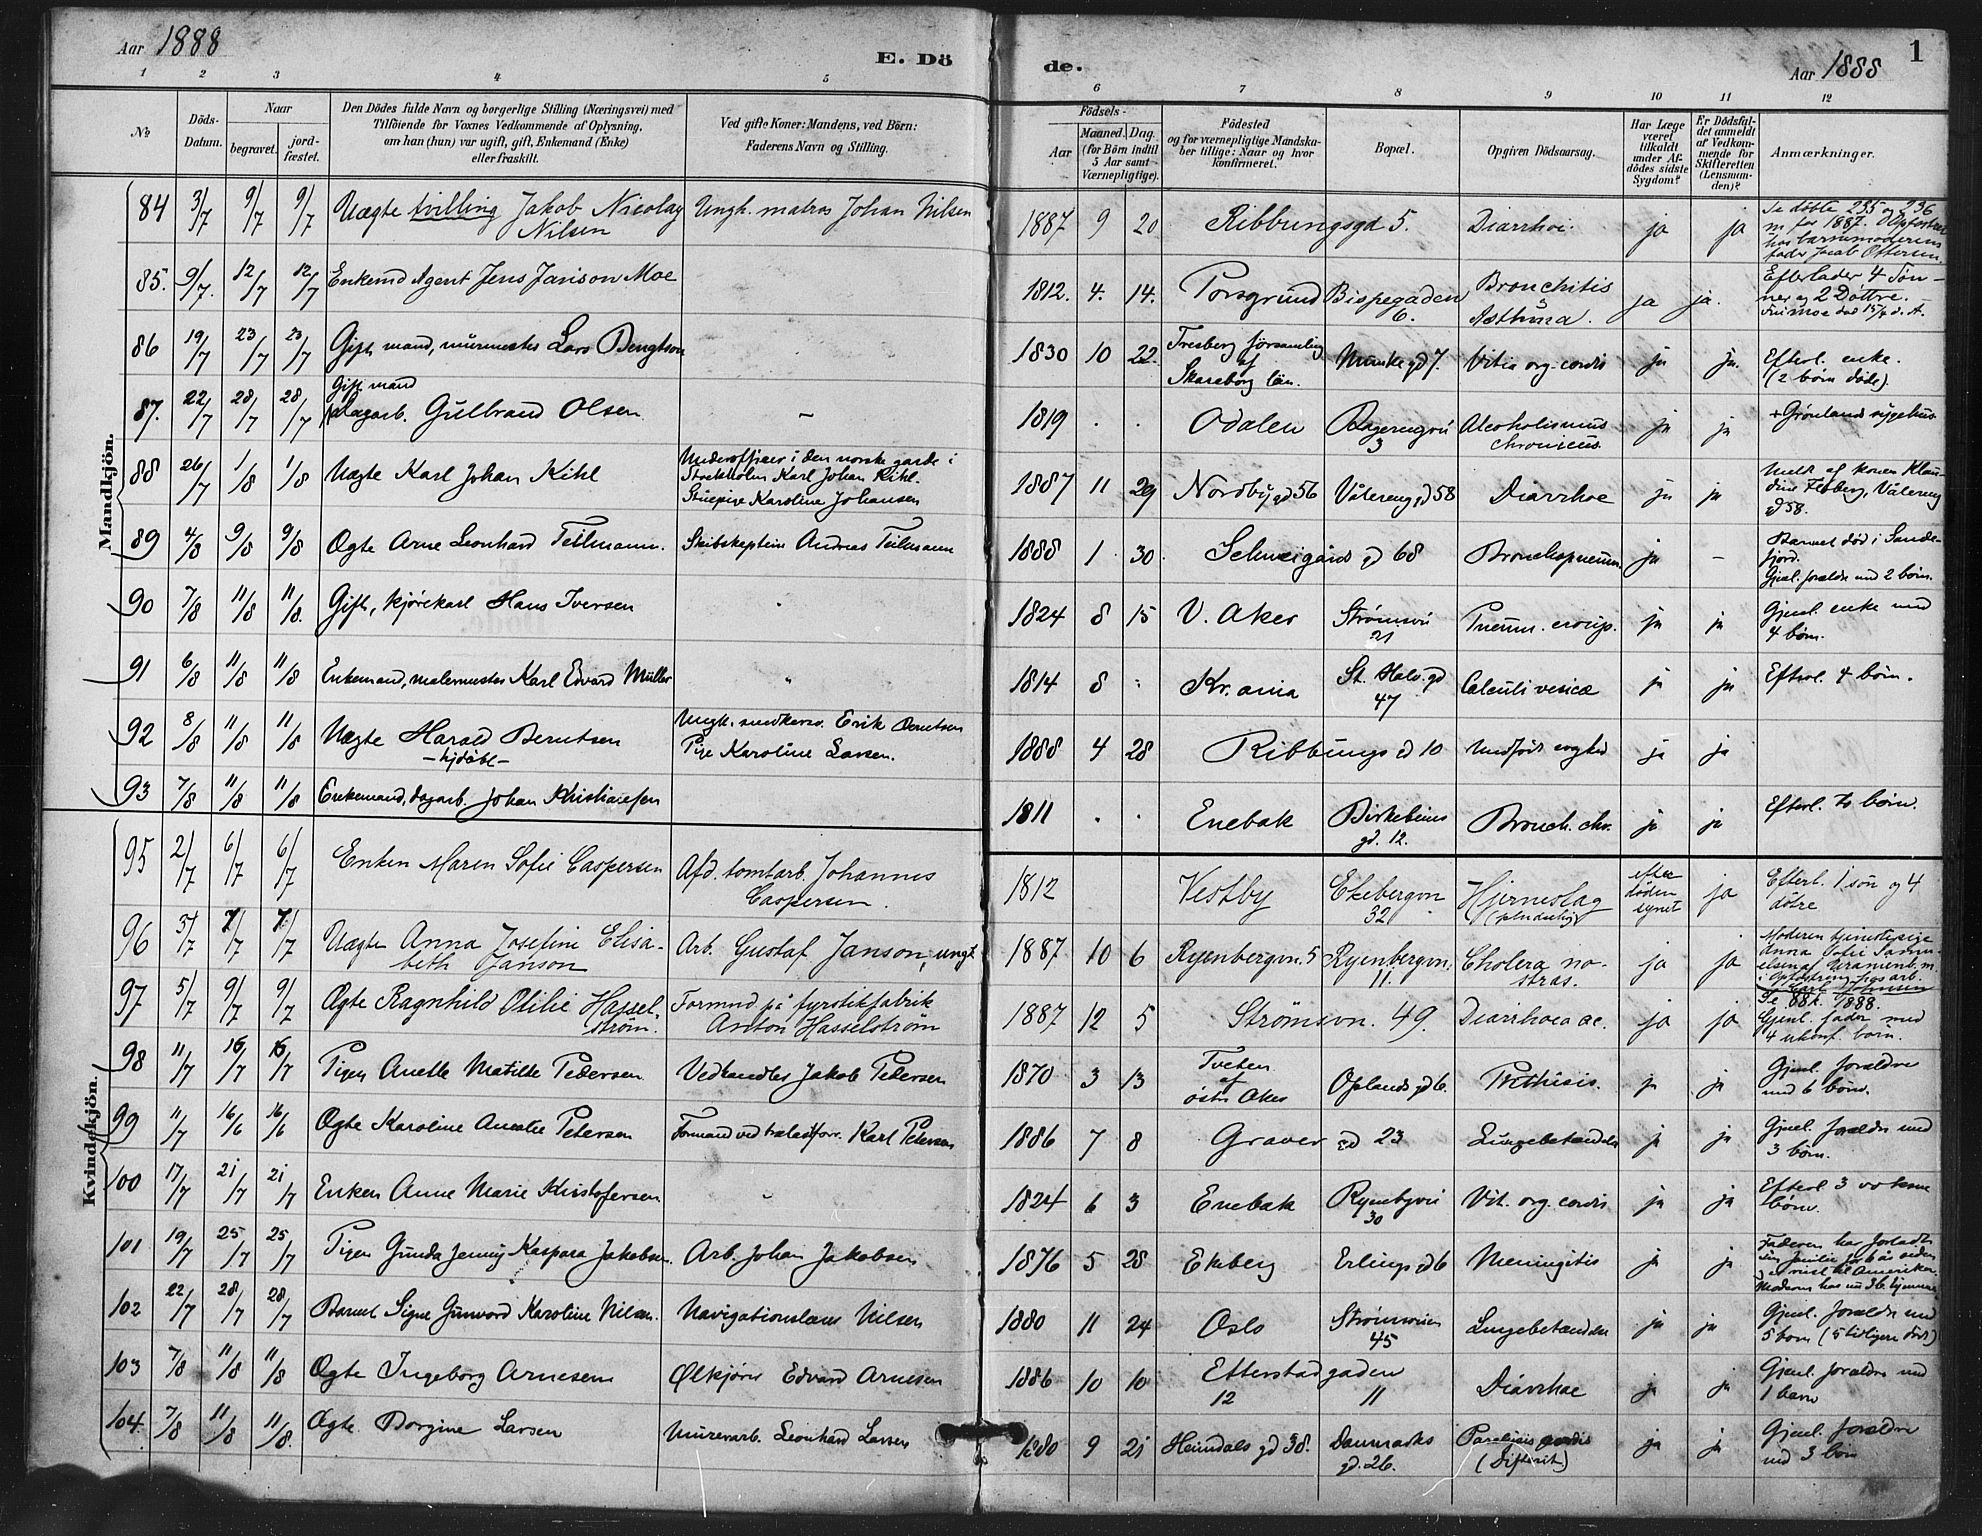 Aar 1888
E. Dö
de.
Aar 1888
1
1 2 3 4 5
6 7 8 9 10 11 12
№
Döds-Datum.
Naar
begravet. jord-fæstet.
Den Dödes fulde Navn og borgerlige Stilling (Næringsvei) med
Tilföiende for Voxnes Vedkommende af Oplysning,
om han (hun) var ugift, gift, Enkemand (Enke)
eller fraskilt.
Ved gifte Koner: Mandens, ved Börn:
Faderens Navn og Stilling.
Födsels-
Aar
Maaned. Dag.
(for Börn indtil
5 Aar samt
Værnepligtige).
Födested
og for værnepligtige Mandska-
ber tillige: Naar og hvor
konfirmeret.
Bopæl.
Opgiven Dödsaarsag.
Har Læge
været
tilkaldt
under Af-
dödes sidste
Sygdom?
Er Dödsfal-
det anmeldt
af Vedkom-
mende for
Skifteretten
(Lensman-
den)?
Anmærkninger.
Mandkjön.
84 3/7 9/7 9/7 Uægte tvilling Jakob Nicolay Ungk. matros Johan Nilsen
Nilsen
1887 9 20 Ribbungsgd 5. Diarrhoi. ja ja Se döbte 235 og 236
85. 9/7. 12/7 12/7 Enkemd Agent Jens Janson Moe
1812. 4. 14. Porsgrund Bispegaden 6. Bronchitis & Asthma. ja ja. Efterlader 4 Søn-
ner og 2 Døttre.
86 19/7 23/7 23/7 Gift mand, murmester Lars Bengtson
1830 10 22. Fresberg församling af Skaraborg län. Munkegd 7. Vitia org. cordis ja ja. Efterl. enke.
(2 børn døde).
87. 22/7 28/7 28/7 Gift mand
Dagarb. Gulbrand Olsen. —
1819 . . Odalen 3 Alcoholismus chronicus. ja ja + Grønlands sygehus
88 26/7 1/8 1/8 Uægte Karl Johan Kihl Underofficer i den norske garde i
Stockholm Karl Johan Kihl.
Stuepige Karoline Johansen
1887 11 29 Nordbygd 56 Vålerenggd 58 Diarrhoe ja ja
gd 58.
89 4/8 9/8 9/8 Ægte Arne Leonhard Teilmann. Skibskaptein Andreas Teilmann
1888 1 30 Schweigårds gd 68 Bronchopneum. ja — Barnet død i Sande-
fjord.
Gjenl. forældre med 2 børn.
90 7/8 11/8 11/8. Gift, kjørekarl Hans Iversen
1824 8 15 V. Aker Strømsvei 21 Pneum. croup. ja ja Gjenl. enke med
4 børn.
91 6/8 11/8 11/8 Enkemand, malermester Karl Edvard Müller
1814 8 Kr.ania St. Halv. gd 47 Calculi vesicæ ja ja Efterl. 4 børn.
92 8/8 11/8 11/8 Uægte Harald Berntsen Ungk. snedkersv. Erik Berntsen
— hjdøbt — Pige Karoline Larsen.
1888 4 28 Ribbungs gd 10 Medfødt svaghed ja ja
93 7/8 11/8 11/8 Enkemand, dagarb. Johan Kristiansen
1811 . . Enebak Birkebeins gd. 12. Bronch. chr. ja ja Efterl. to børn.
Kvindekjön.
95 2/7 6/7 6/7 Enken Maren Sofie Caspersen Afd. tomtarb. Johannes
Caspersen.
1812 Vestby Ekebergvn 32 Hjerneslag efter døden synet ja Efterl. 1 søn og 4
døtre
96 5/7 7/7 7/7 Uægte Anna Josefine Elisa- Arb. Gustaf Janson, ungk.
beth Janson
1887 10 6 Ryenbergvn. 5 Ryenbergvn. 11. Cholera no-stras. ja ja Moderen tjenestepige
97 5/7 9/7 9/7 Ægte Ragnhild Otilie Hassel- Formnd på fyrstikfabrik
strøm. Anton Hasselstrøm
1887 12 5 Strømsvn. 49. Diarrhoea ac. ja ja Gjenl. fader med
4 ukonf. børn.
98 11/7 16/7 16/7 Pigen Anette Matilde Pedersen Vedhandler Jakob Pedersen
1870 3 13 Tveten af østre Aker Oplands gd 6. Phthisis. ja ja Gjenl. forældre
med 6 børn.
99 11/7 16/6 16/6 Ægte Karoline Amalie Petersen Formand ved trælastforr. Karl Petersen
1886 7 8 Graver gd 23 Lungebetændelse ja ja Gjenl. forældre med
3 børn.
100 17/7 21/7 21/7 Enken Anne Marie Kristofersen
1824 6 3 Enebak Ryenbgvei 30 Vit. org. cordis ja ja Efterl 3 voksne
børn.
101 19/7 25/7 25/7 Pigen Gunda Jenny Kaspara Jakobsen. Arb. Johan Jakobsen
1876 5 28 Ekeberg Erlings gd 6 Meningitis ja ja Faderen har forladt
sin familie for 6 år siden
og er reist til Amerika.
102 22/7 28/7 28/7 Barnet Signe Gunvord Karoline Nilsen. Navigationslærer Nilsen
1880 11 24 Oslo Strømsveien 45 Lungebetændelse ja ja Gjenl. forældre med
5 børn (5 tidligere døde)
103 7/8 11/8 11/8 Ægte Ingeborg Arnesen Ølkjører Edvard Arnesen
1886 10 10 Etterstadgaden 12 11 Diarrhoe ja ja Gjenl. forældre med
1 barn
104. 7/8 11/8 11/8. Ægte Borgine Larsen Murerarb. Leonhard Larsen
1880 9 21 Heimdals gd 38. Danmarks gd. 26. Paralysis cordis (Difterit) ja ja Gjenl. forældre
med 3 børn